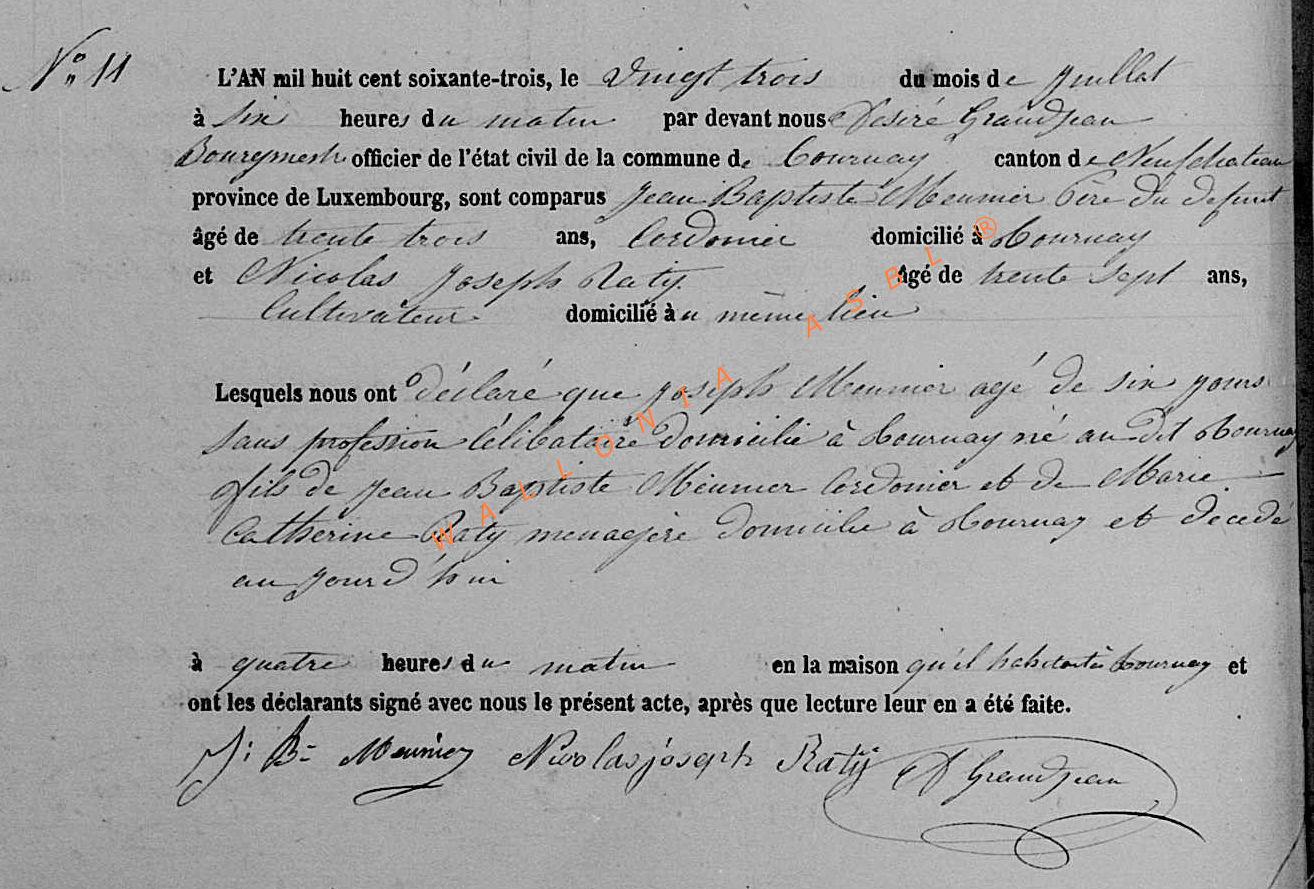 N° 11
L'AN mil huit cent soixante-trois, le vingt trois du mois de juillat
à six heures du matin par devant nous Désiré Grandjean
Bourgmestre officier de l'état civil de la commune de Tournay canton de Neufchateau
province de Luxembourg, sont comparus Jean Baptiste Meunier Père du defunt
âgé de trente trois ans, Cordonier domicilié à Tournay
et Nicolas Joseph Raty âgé de trente sept ans,
Cultivateur domicilié au même lieu
Lesquels nous ont déclaré que Joseph Meunier agé de six jours
sans profession Célibataire domicilié à Tournay né au dit Tournay
fils de Jean Baptiste Meunier Cordonier et de Marie
Catherine Raty menagère domicilie à Tournay et décedé
au jourd'hui
à quatre heures du matin en la maison qu'il habitait à Tournay et
ont les déclarants signé avec nous le présent acte, après que lecture leur en a été faite.
J: B- Meunier Nicolas joseph Raty D Grandjean
WALLONIA ASBL ®